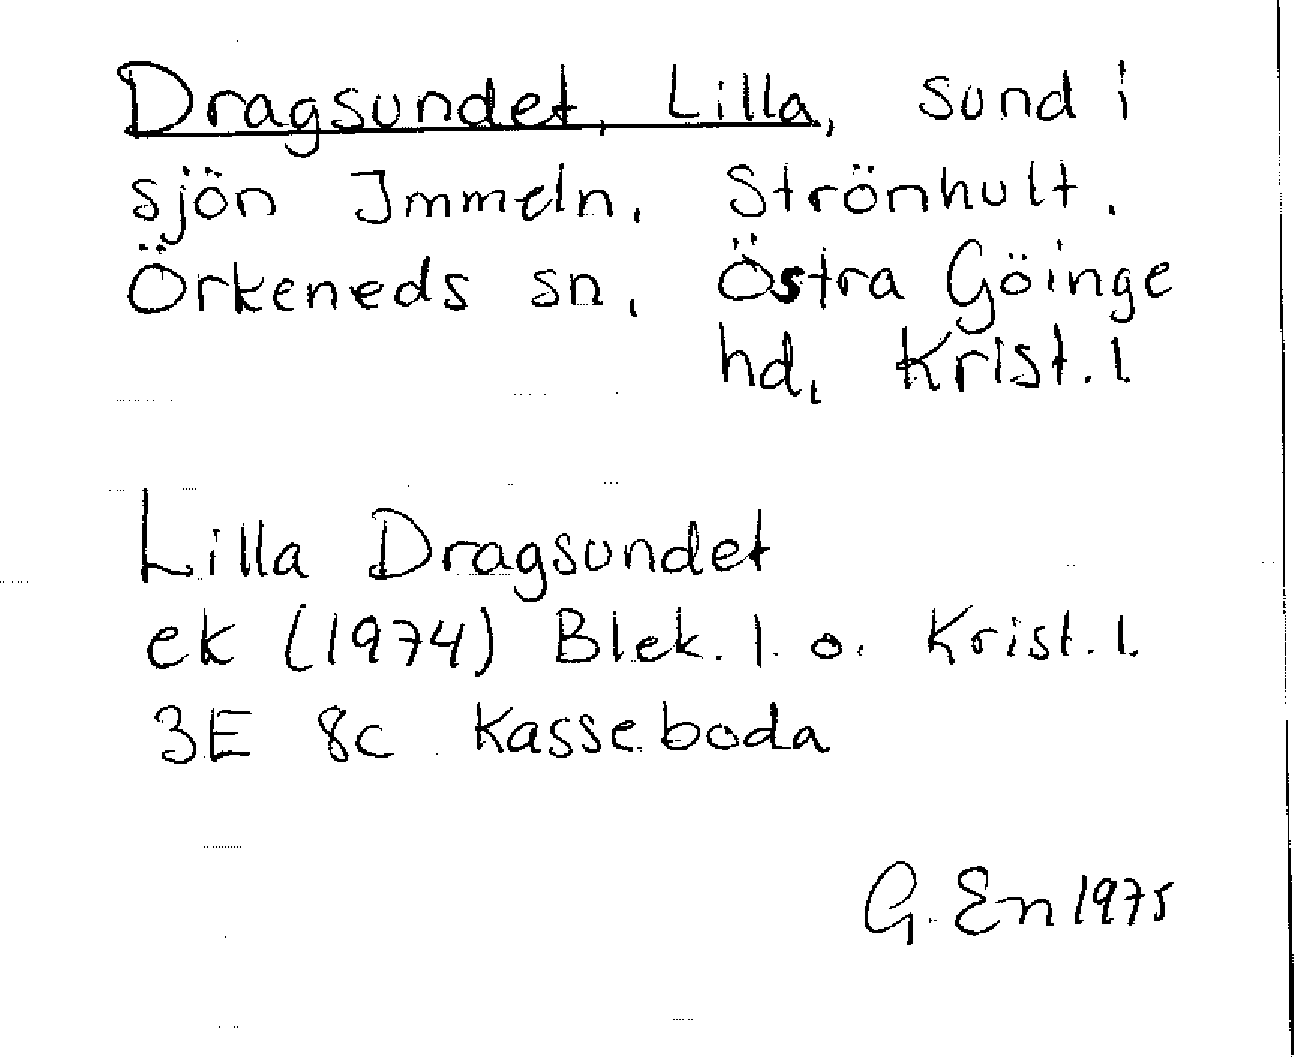 Dragsundet, Lilla, sund i
sjön Immeln. Strönhult.
Örkeneds sn. Östra Göinge
hd, Krist. l
Lilla Dragsundet
ek (1974) Blek. l. o. Krist. l.
3E 8c Kasseboda
G. En 1975